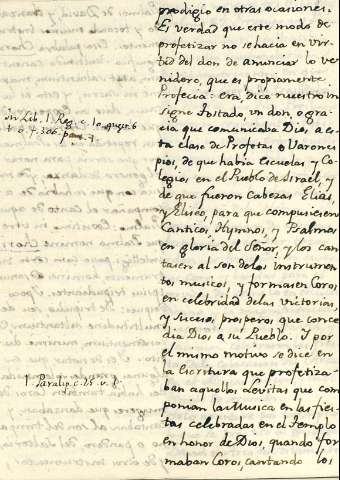 prodigio en otras ocasiones.
Es verdad que este modo de
profetizar no se hacia en vir-
tud del don de anunciar lo ve-
nidero, que es propiamente
Profecia: era, dice nuestro in
signe Tostado, un don, o gra-
cia que comunicaba Dios, a es-
ta clase de Profetas o Varones
pios, de que habia Escuelas y Co-
legios en el Pueblo de Israèl, y
de que fueron Cabezas Elias,
y Eliseo, para que compusiesen
Canticos, Hymnos, y Psalmos
en gloria del Señor, y los can-
tasen al son de los instrumen-
tos musicos, y formasen Coros
en celebridad de las victorias
y sucesos prosperos que conce
dia Dios a su Pueblo. I por
el mismo motivo se dice en
la Escritura que profetiza-
ban aquellos Levitas que com
ponian las Musica en las fies
tas celebradas en el Templo
en honor de Dios, quando for
maban Coros, cantando los
In Lib. 1. Reg. c. 10. quęst. 6
t. 6. f. 326.
1. Paralip. c. 25. v.